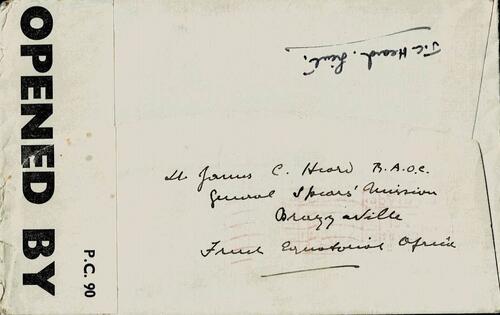 OPENED BY
P.C. 90
J.C. Heard. Lieut.
Lt James C. Heard R.A.O.C.
General Spears' Mission
Brazzaville
French Equatorial Africa